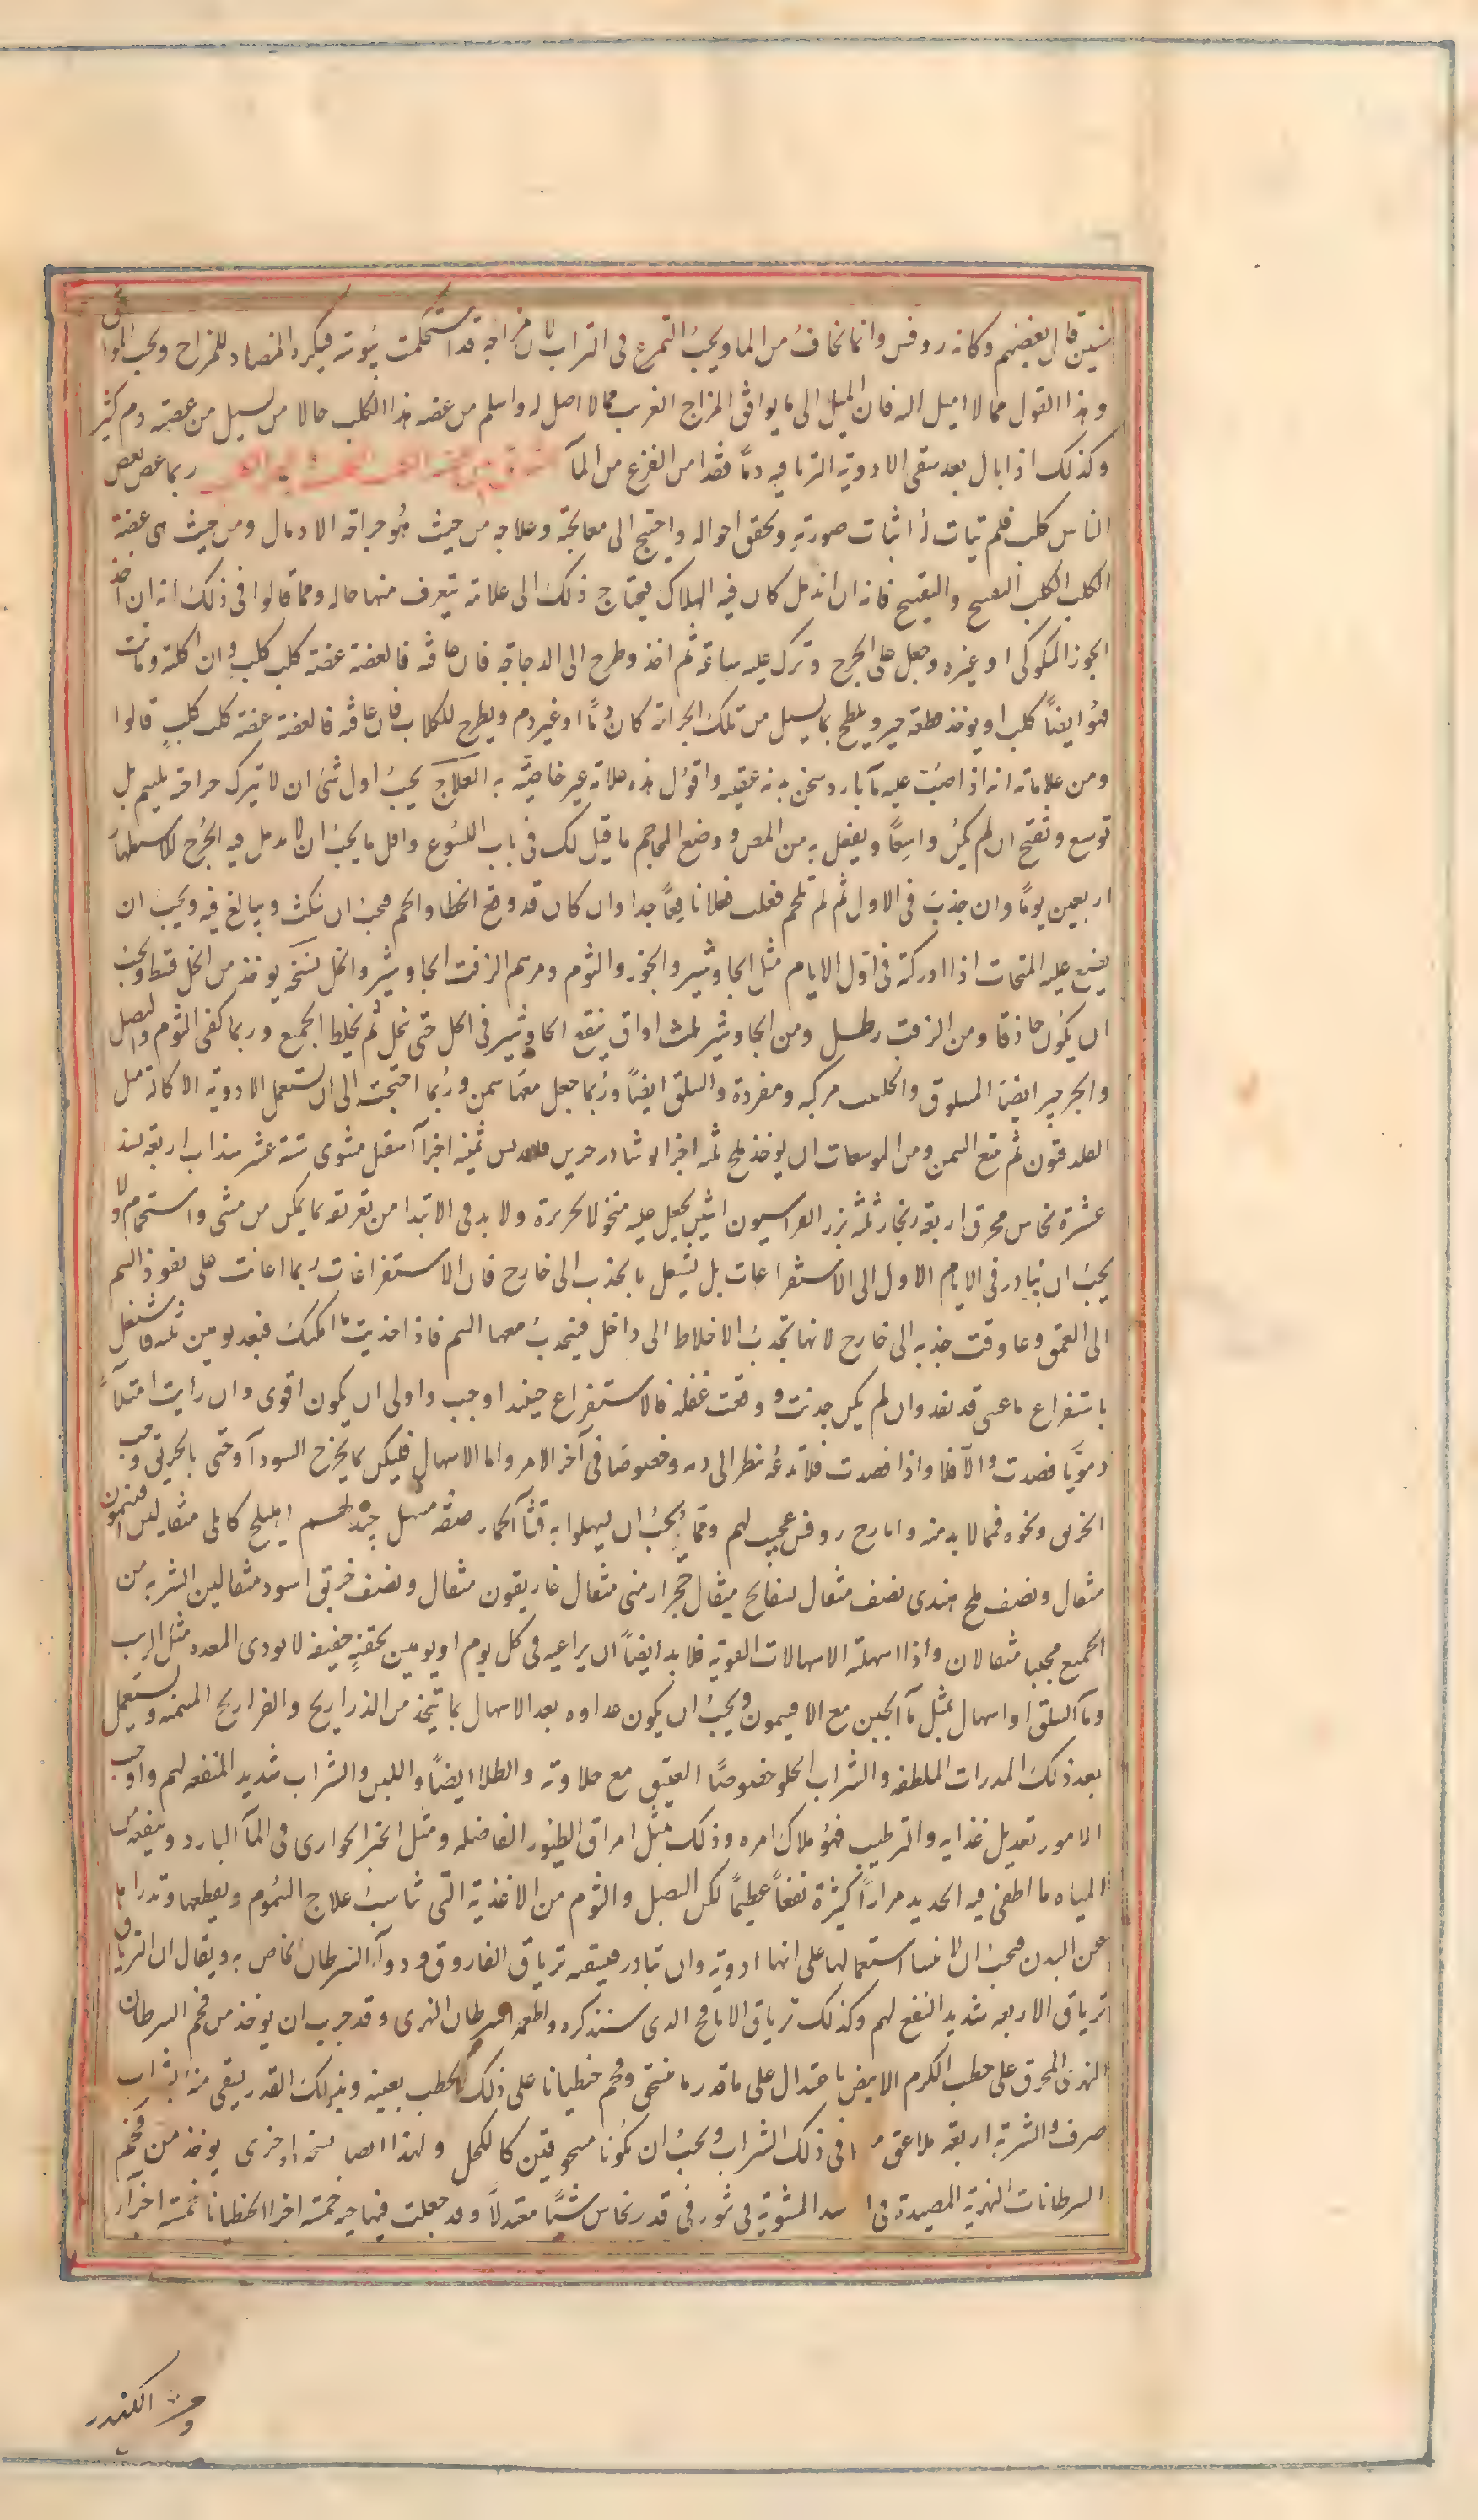 سنين قال بعضهم وكانه روفس وانما نخاف من الماء ويحب التمرغ فى التراب لان مزاجه قد استحكمت يبوسته فيكره المضاد للمزاج ويحب الموافق
وهذا القول مما لا اميل اليه فان الميل الى ما يوافق المزاج الغريب مما لا اصل له واسلم من عضه هذا الكلب حالا من يسيل من عضته دم كثير
وكذلك اذا بال بعد سقى الادوية الترياقيه دمًا فقد امن الفزع من المآ ربما عض بعض
الناس كلب فلم يتات له اثبات صورته وتحقق احواله واحتيج الى معالجته وعلاجه من حيث هو جراحة الادمال ومن حيث هى عضة
الكلب الكلب التفتيح والتقييح فانه ان اندمل كان فيه الهلاك فيحتاج ذلك الى علامة يتعرف منها حاله ومما قالوا فى ذلك انه ان اخذ
الجوز الملوكى او غيره وجعل على الجرح وترك عليه ساعة ثم اخذ وطرح الى الدجاجة فان عافته فالعضة عضة كلب كلب وان اكلته وماتت
فهو ايضًا كلب او يوخذ قطعة خبز ويلطخ بما يسيل من تلك الجراحة كان دمًا او غير دم ويطرح للكلاب فان عافته فالعضة عضة كلب كلب قالوا
ومن علاماته انه اذا اصبت عليه مآ بارد سخن بدنه عقيبه واقول هذه علامة غير خاصية به العلاج يجب اول شئ ان لا تترك جراحته يلتحم بل
توسع وتفتح ان لم يكن واسعًا ويفعل به من المص ووضع المحاجم ما قيل لك فى باب اللسوع واقل ما يجب ان لا يدمل فيه الجرح للاستظهار
اربعين يومًا وان جذب فى الاول ثم لم تلحم فعلت فعلا نافعًا جدا وان كان قد وقع الخطا والحم فيجب ان تنكث ويبالغ فيه ويجب ان
يضع عليه المفتحات اذا ادركته فى اول الايام مثل الجاوشير والجوز والثوم ومرهم الزفت الجاوشير والخل نسخة يوخذ من الخل قسط ويجب
ان يكون حاذقا ومن الزفت رطل ومن الجاوشير ثلث اواق ينقع الجاوشير فى الخل حتى ينحل ثم يخلط الجميع وربما كفى الثوم والبصل
والجرجير ايضا المسلوق والحلتيت مركبه ومفردة والسلق ايضًا وربما جعل معها سمن وربما احتجت الى ان تستعمل الادوية الاكالة مثل
القلدقون ثم تتبع السمن ومن الموسعات ان يوخذ ملح ثلثه اجزا نوشادر جزين قلقديس ثمنيه اجزآ اسقيل مشوى ستة عشر سذاب اربعة
عشرة نحاس محرق اربعة زنجار ثلثه بزر الفراسيون اثنين يجعل عليه منخولا كحريرة ولا بد فى الابتدا من تعريقه بما يمكن من مشى واستحمام ولا
يجب ان يبادر فى الايام الاول الى الاستفراغات بل يشتغل بالجذب الى خارج فان الاستفراغات ربما اعانت على نفوذ السم
الى العمق وعاوقت جذبه الى خارج لانها تجذب الاخلاط الى داخل فينجذب معها السم فاذا جذبت ما امكنك فبعد يومين ثلثه فاشتغل
باستفراغ ما عسى قد نفذ وان لم يكن جذبت ووقعت غفلة فالاستفراغ حينئذ اوجب واولى ان يكون اقوى وان رايت امتلآً
دمويًّا فصدت والا فلا واذا فصدت فلا تدعه ينظر الى دمه وخصوصا فى آخر الامر واما الاسهال فليكن بما يخرج السودآ وحتى بالخربق وحب
الخربق ونحوه فمما لا بد منه وايارج روفس عجيب لهم ومما يجب ان يسهلوا به قثآ الحمار صفة مسهل جيد لهم اهليلج كابلى مثقالين افتيمون
مثقال ونصف ملح هندى نصف مثقال بسفايج مثقال حجر ارمنى مثقال غاريقون مثقال ونصف خربق اسود مثقالين الشربة من
الجميع محببا مثقالان واذا اسهلته الاسهالات القوية فلا بد ايضًا ان يراعيه فى كل يوم او يومين بحقنةٍ خفيفه لا يوذى المعدة مثل الزيت
ومآ السلق او اسهال بمثل مآ الجبن مع الافتيمون ويجب ان يكون غذاوه بعد الاسهال بما يتخذ من الذراريح والفراريج المسمنه ويستعمل
بعد ذلك المدرات الملطفه والشراب الحلو خصوصًا العتيق مع حلاوته والطلا ايضًا واللبن والشراب شديد المنفعه لهم واوجب
الامور تعديل غذايه والترطيب فهو ملاك امره وذلك بمثل امراق الطيور الفاضله ومثل الخبز الحوارى فى المآ البارد وينفعه من
المياه ما اطفئ فيه الحديد مرارًا كثيرة نفعًا عظيمًا لكن البصل والثوم من الاغذية التى تناسب علاج السموم ويقطعها وتدرا بها
عن البدن فيجب ان لا ينسا استعمالها على انها ادوية وان تبادر فيسقيه ترياق الفاروق ودوآ السرطان الخاص به ويقال ان الترياق
ترياق الاربعه شديد النفع لهم وكذلك ترياق الافاعى الذى سنذكره واطعمه السرطان النهرى وقد جرب ان يوخذ من فحم السرطان
النهرى المحرق على حطب الكرم الابيض باعتدال على ما قدر ما ينسحق وفحم جنطيانا على ذلك الحطب بعينه وبذلك القدر يسقى منه بشراب
صرف والشربة اربعة ملاعق فى ذلك الشراب ويجب ان يكونا مسحوقتين كالكحل ولهذا ايضا نسخة اخرى يوخذ من فحم
السرطانات النهرية المصيدة المشوية فى تنور فى قدر نحاس شيًّا معتدلًا وقد جعلت فيها حيه خمسة اجزا الجنطيانا خمسة اجزآ
الكندر